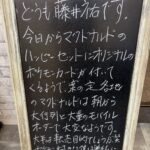 どうも藤井祐です。
今日からマクドナルドの
ハッピーセットにオリジナルの
ポケモンカードが付いて
くるようで、案の定各地
のマクドナルドは朝から
大行列と大量のモバイル
オーダーで大変なようです。
大半は転売目的でしょうが